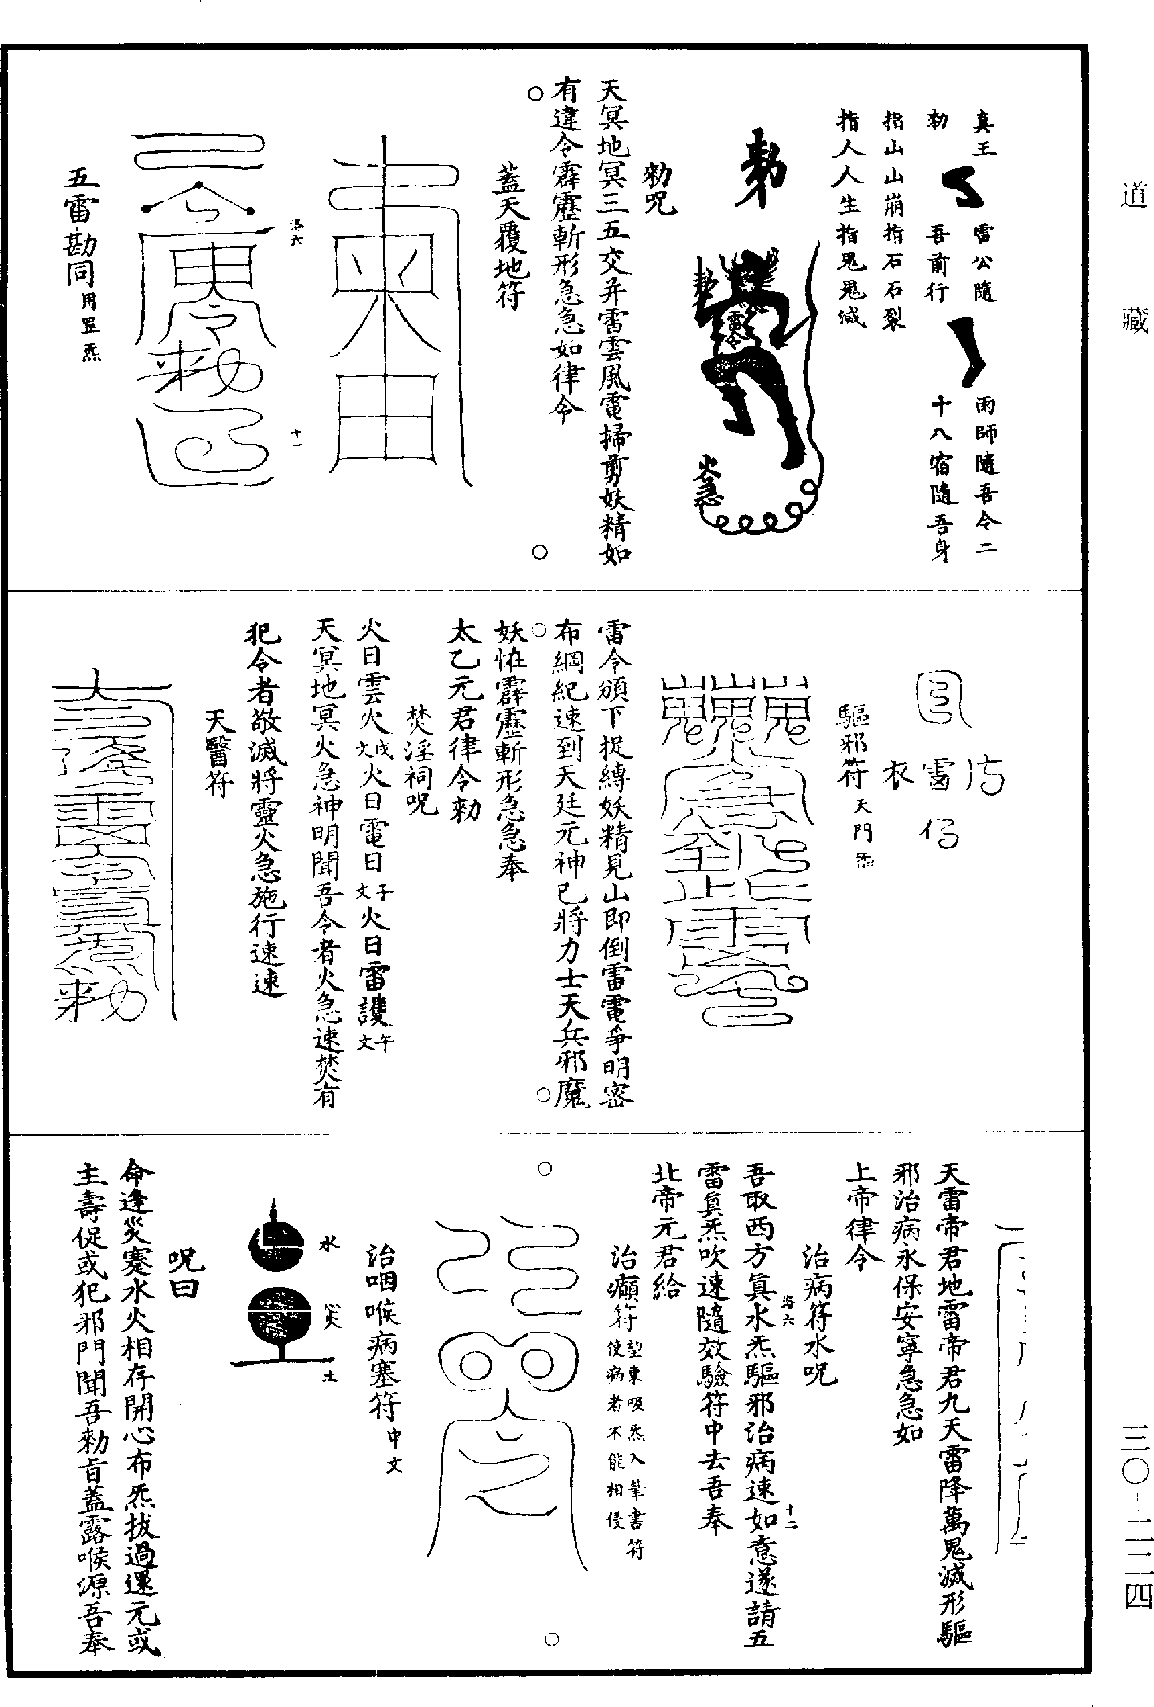 道藏
三〇-二二四
真王 雷公隨 雨師隨吾令二
勑 吾前行 十八宿隨吾身
指山山崩指石石裂
指人人生指鬼鬼滅
勑
火急
勑咒
天冥地冥三五交并雷雲風電掃剪妖精如
有違令霹靂斬形急急如律令
蓋天覆地符
洛六
十一
五雷勘同用罡炁
雷
驅邪符天門炁
雷令頒下捉縛妖精見山即倒雷電爭明密
布綱紀速到天廷元神已將力士天兵邪魔
妖怪霹靂斬形急急奉
太乙元君律令勑
焚淫祠咒
火日雲火戌文火日電日子文火日雷護午文
天冥地冥火急神明聞吾令者火急速焚有
犯令者敬滅將靈火急施行速速
天醫符
天雷帝君地雷帝君九天雷降萬鬼滅形驅
邪治病永保安寧急急如
上帝律令
治病符水咒
吾取西方真水炁驅邪治病速如意遂請五
洛六
十二
雷真炁吹速隨效驗符中去吾奉
北帝元君給
治癲符望東吸炁入筆書符使病者不能相侵
治咽喉病塞符中文
水
火
土
咒曰
命逢災蹇水火相存開心布炁拔過還元或
主壽促或犯邪門聞吾勑旨蓋露喉源吾奉